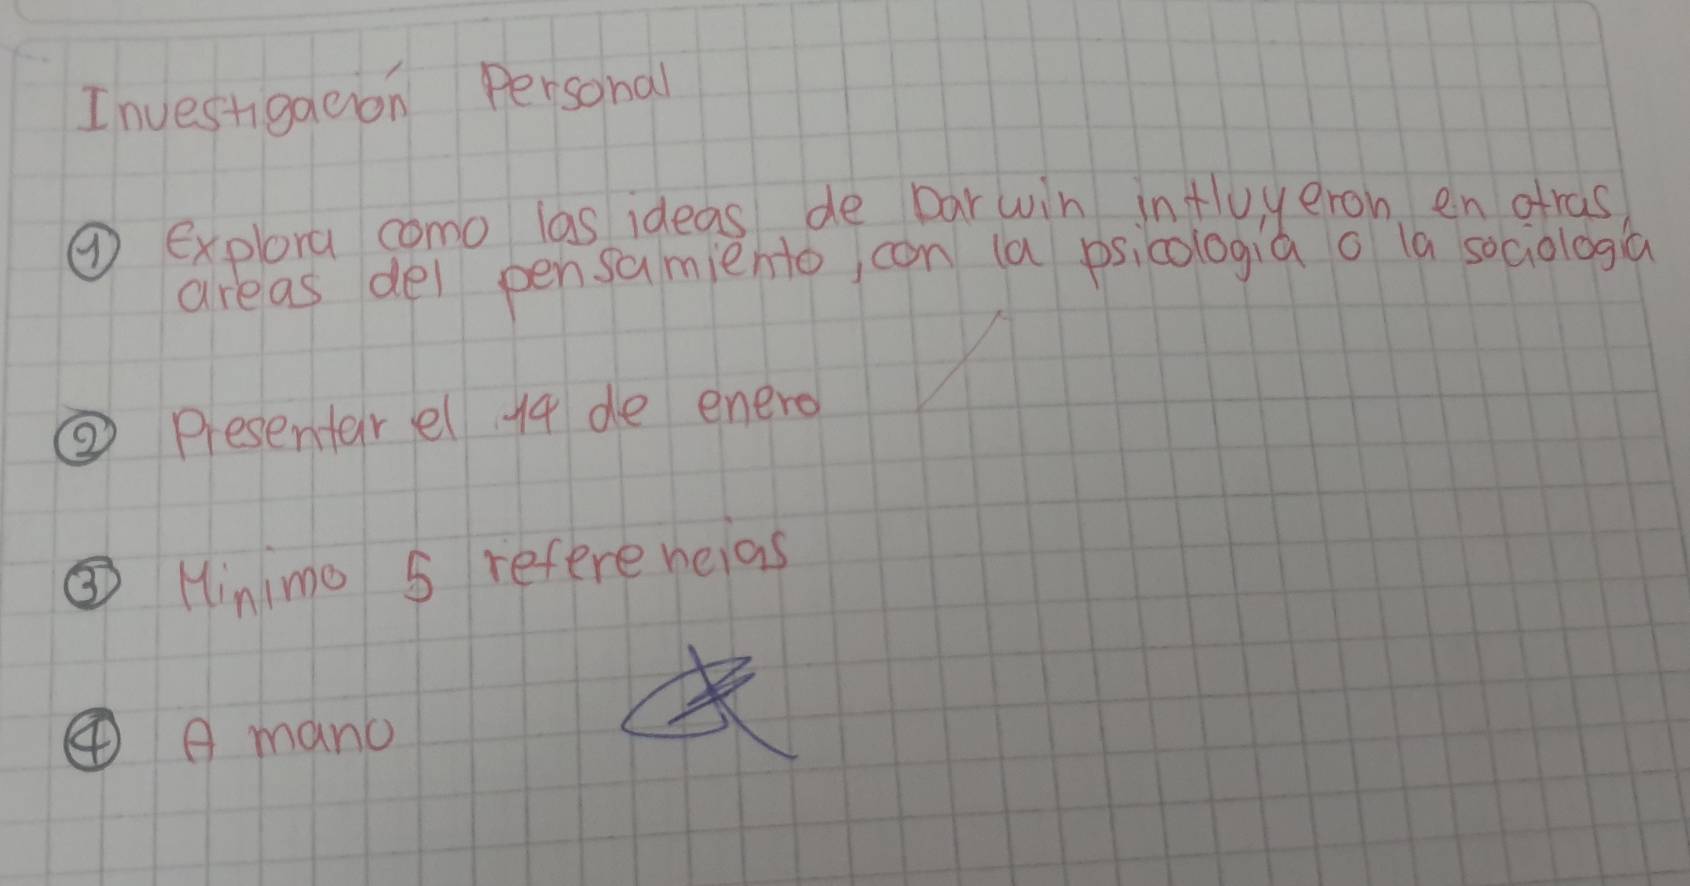 Investigación Personal
① Explora como las ideas de Darwin influyeron en otras
areas del pensamiento, con la psicología o la sociología
② Presentar el 14 de enero
③ Minimo 5 referencias
④ A mano